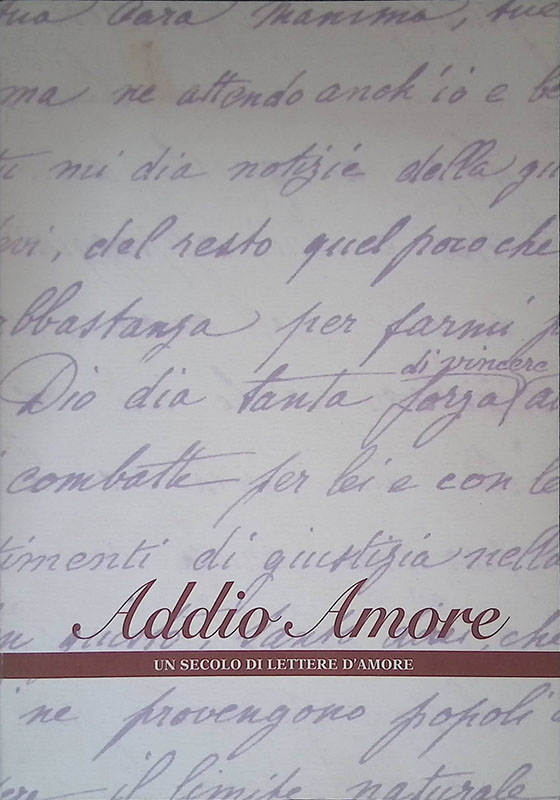 Cara Mamma, tue
ma ne attendo anch'io e be
mi dia notizie della gu
vi, del resto quel poco che
bbastanza per farmi p
di vincere
Dio dia tanta forza a
i combatte per lei e con le
timenti di giustizia nella
Addio Amore
UN SECOLO DI LETTERE D'AMORE
ne provengono popoli
il limite naturale